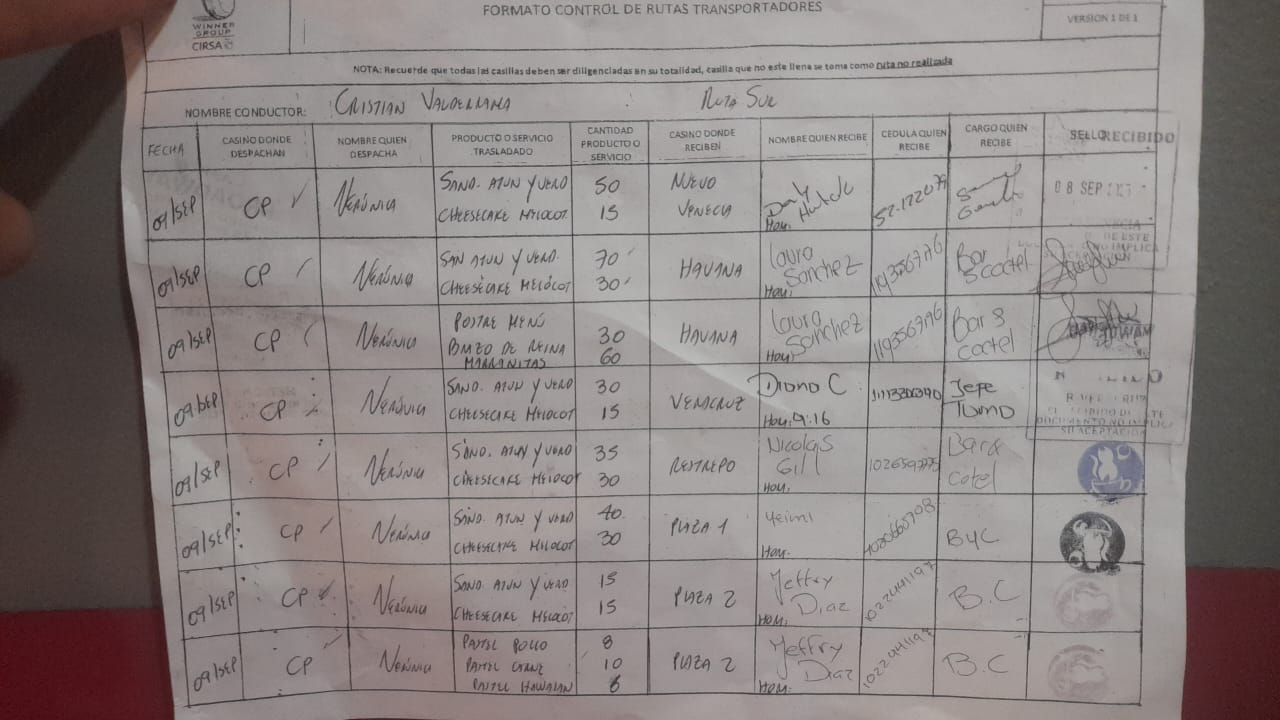 FORMATO CONTROL DE RUTAS TRANSPORTADORES
VERSION 1 DE 1
WINNER GROUP
CIRSA
NOTA: Recuerde que todas las casillas deben ser diligenciadas en su totalidad, casilla que no este llena se toma como ruta no realizada
NOMBRE CONDUCTOR: CRISTIAN VALDERRAMA RUTA SUR
FECHA CASINO DONDE DESPACHAN NOMBRE QUIEN DESPACHA PRODUCTO O SERVICIO TRASLADADO CANTIDAD PRODUCTO O SERVICIO CASINO DONDE RECIBEN NOMBRE QUIEN RECIBE CEDULA QUIEN RECIBE CARGO QUIEN RECIBE SELLO
RECIBIDO
08 SEP
09/SEP CP VERÓNICA SAND. ATUN Y VERD 50 NUEVO VENECIA
CHEESECAKE MELOCOT 15
09/SEP CP VERÓNICA SAN ATUN Y VERD. 70 HAVANA Laura Sanchez
CHEESECAKE MELOCOT 30 Hora:
09/SEP CP VERÓNICA POSTRE MENÚ 30 HAVANA Laura Sanchez Bar & Coctel
BRAZO DE REINA 60 Hora:
MARRANITAS
09/SEP CP VERÓNICA SAND. ATUN Y VERD 30 VERACRUZ Diana C Jefe Turno
CHEESECAKE MELOCOT 15 Hora: 9:16
09/SEP CP VERÓNICA SAND. ATUN Y VERD 35 RESTREPO Nicolas Gill Bar & Cotel
CHEESECAKE MELOCOT 30 Hora:
09/SEP CP VERÓNICA SAND. ATUN Y VERD 40 PLAZA 1 Yeimi ByC
CHEESECAKE MELOCOT 30 Hora:
09/SEP CP VERÓNICA SAND. ATUN Y VERD 15 PLAZA 2 Jeffry Diaz 1022441197 B.C
CHEESECAKE MELOCOT 15 Hora:
09/SEP CP VERÓNICA PASTEL POLLO 8 PLAZA 2 Jeffry Diaz 1022441197 B.C
PASTEL CARNE 10
PASTEL HAWAIAN 6 Hora: